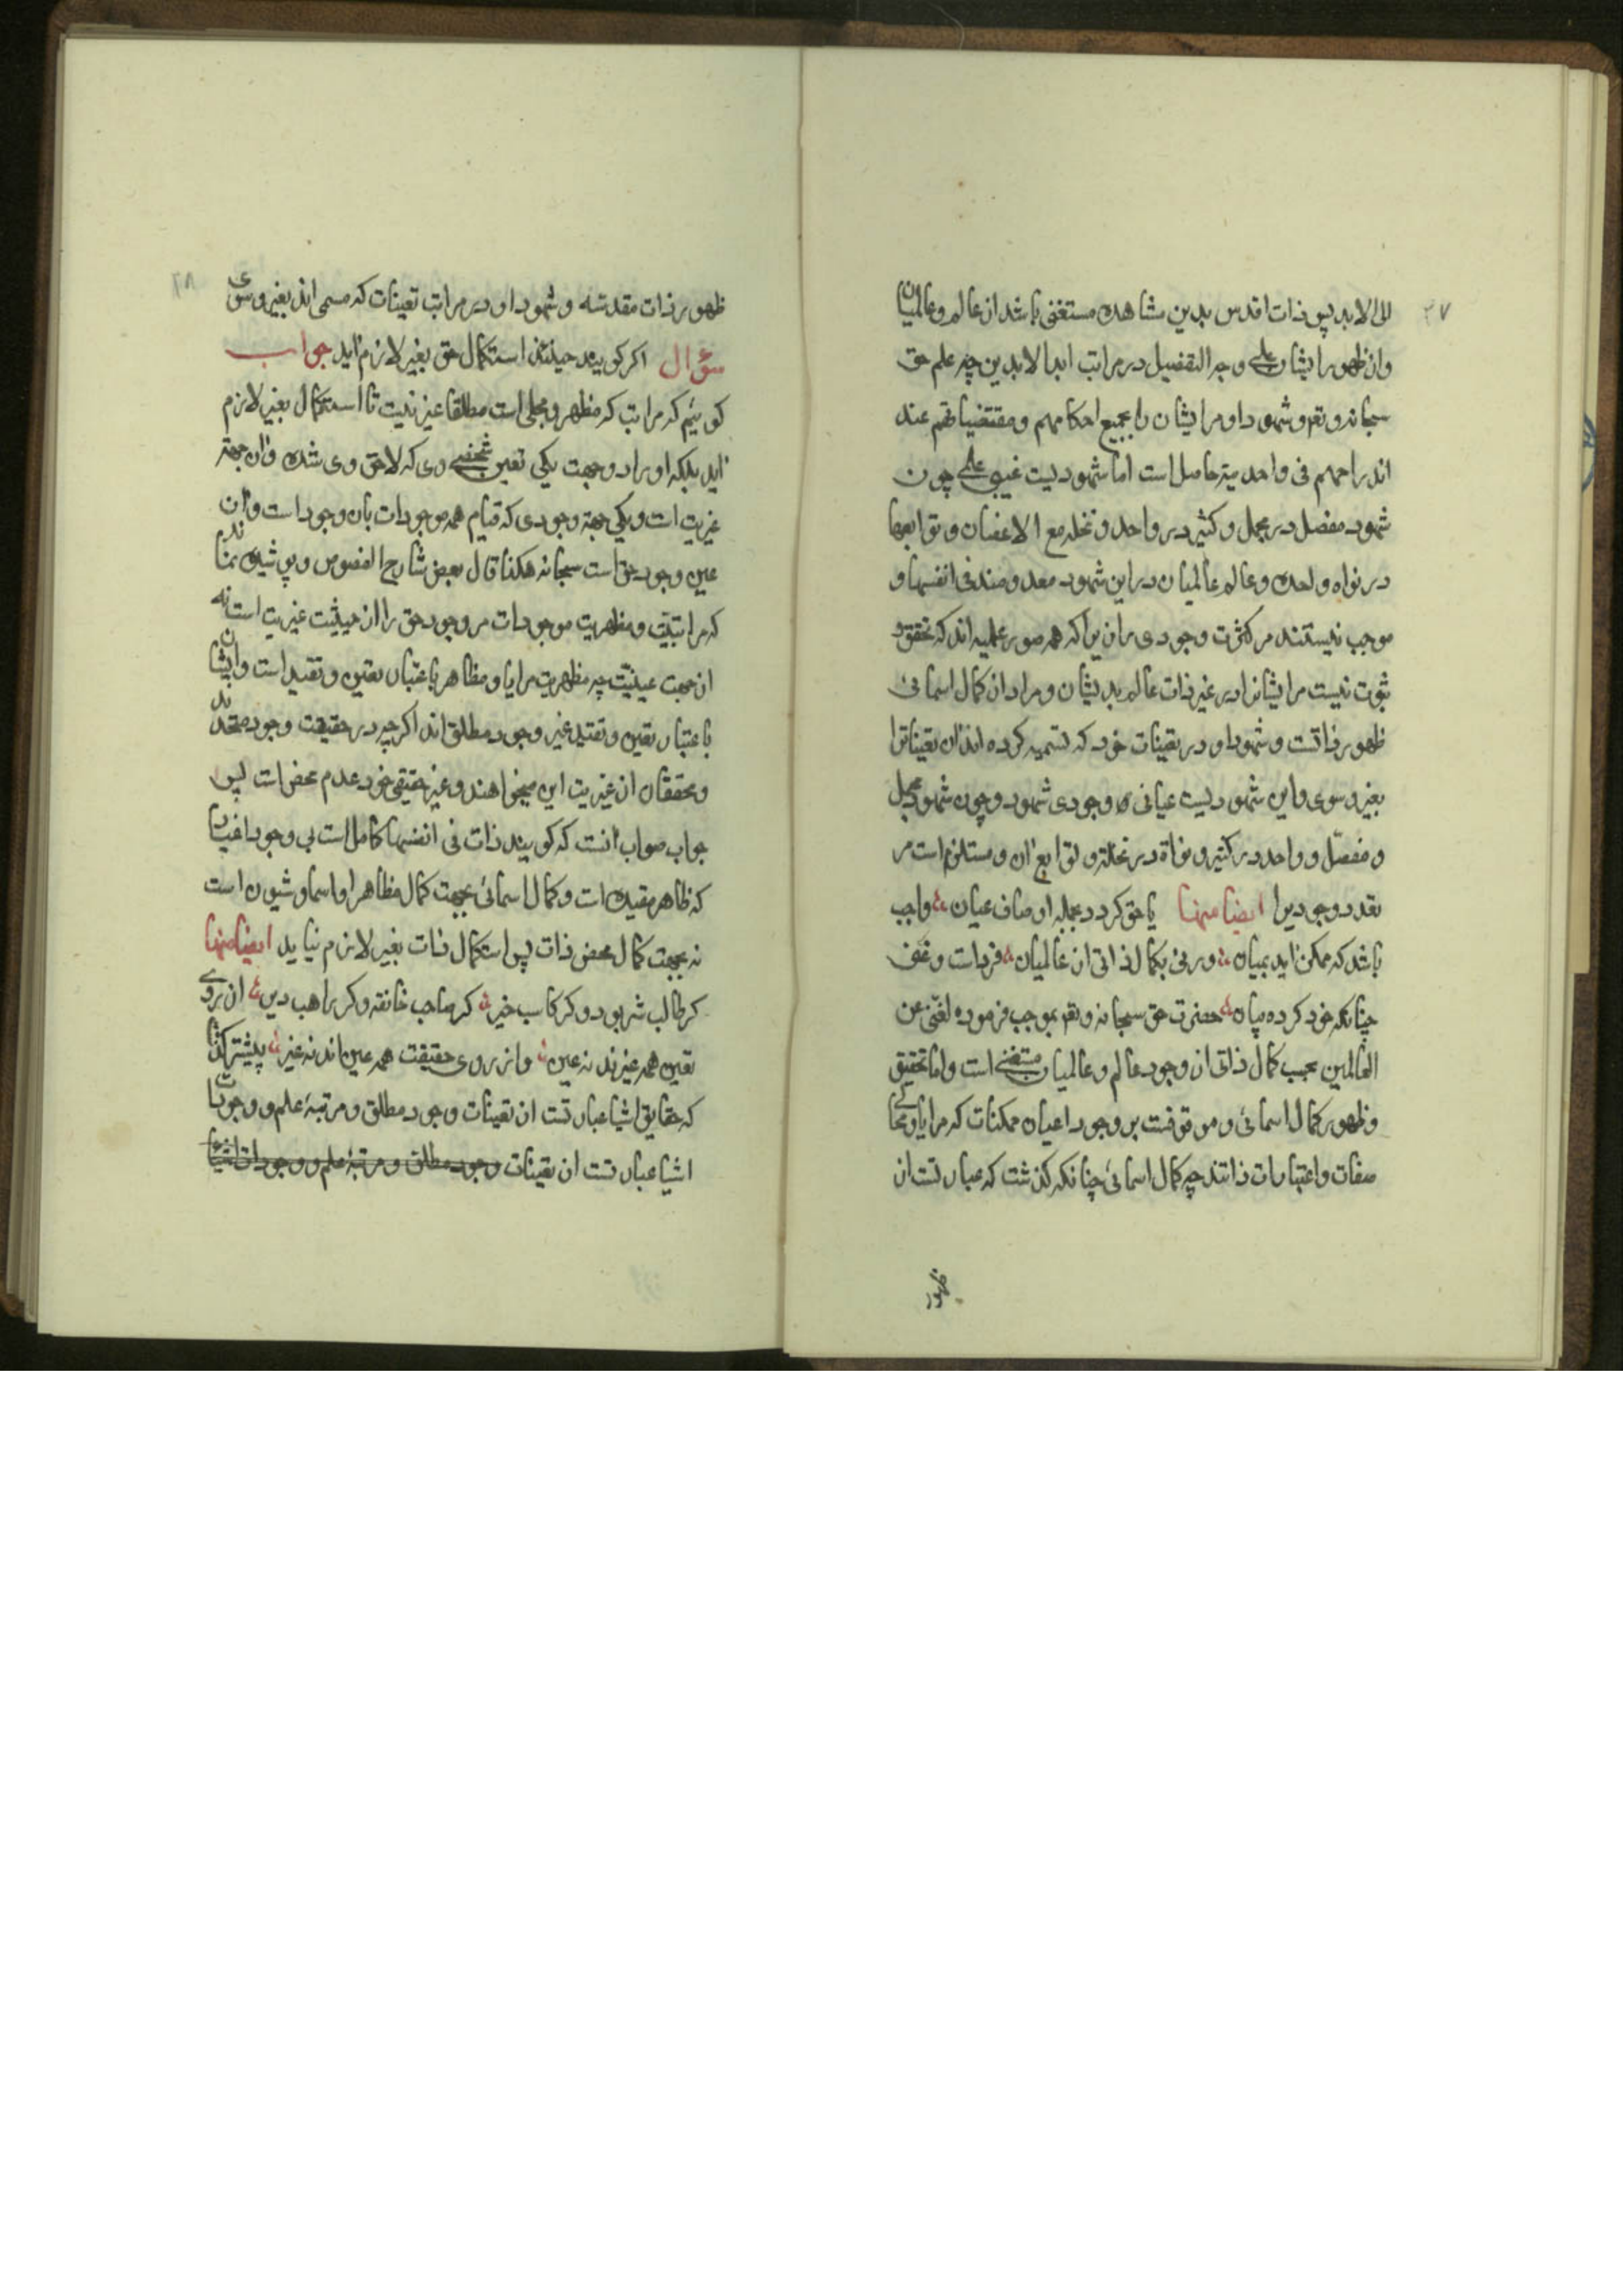 ۳۷
الی الابد پس ذات اقدس بدین مشاهده مستغنی باشد از عالم و عالمیان
و از ظهور ایشان علی وجه التفصیل در مراتب ابدا لابدین چه علم حق
سبحانه و تعم و شهود او مر ایشان را بجمیع احکامهم و مقتضیاتهم عند
اندراجهم فی واحدیته حاصل است اما شهودیست غیبی علمی چون
شهود مفصل در مجمل و کثیر در واحد و نخله مع الاغصان و توابعها
در نواه واحده و عالم عالمیان در این شهود معدومند فی انفسها و
موجب نیستند مر کثرت وجودی را زیرا که همه صور علمیه اند که تحقق و
ثبوت نیست مر ایشانرا در غیر ذات عالم بدیشان و مراد از کمال اسمائی
ظهور ذاتست و شهود او در تعینات خود که تسمیه کرده اند ان تعیناترا
بغیر و سوی و این شهودیست عیانی وجودی شهود و چون شهود مجمل
و مفصّل و واحد در کثیر و نواة در نخلة و توابع ان و مستلزم است مر
تعدد وجودیرا ایضا منها یا حق کردد بجمله اوصاف عیان واجب
باشد که ممکن اید بمیان ورنی بکمال ذاتی از عالمیان فرداست و غنی
چنانکه خود کرده بیان حضرت حق سبحانه و تعم بموجب فرموده لغنی عن
العالمین بحسب کمال ذاتی از وجود عالم و عالمیان مستغنی است و اما تحقیق
و ظهور کمال اسمائی و موقوفست بر وجود اعیان ممکنات که مرایا و مجالی
صفات و اعتبارات ذاتند چه کمال اسمائی چنانکه کذشت که عبارتست از
ظهور
۳۸
ظهور ذات مقدسه و شهود او در مراتب تعینات که مسمی اند بغیر و سوی
سؤال اکر کویند حینئذ استکمال حق بغیر لازم اید جواب
کوئیم که مراتب که مظهر و مجلی است مطلقا غیر نیت تا استکمال بغیر لازم
اید بلکه او را دو جهت یکی تعین شخصی وی که لاحق وی شده و ان جهة
غیریت است و یکی جهة وجودی که قیام همه موجودات بان وجود است و ان
عین وجود حق است سبحانه هکذا قال بعض شارح الفصوص و پوشیده نماند
که مراتبیت و مظهریت موجودات مر وجود حق را از حیثیت غیریت است نه
از جهت عینیّت چه مظهریت مرایا و مظاهر باعتبار تعین و تقید است و ایشان
باعتبار تعین و تقید غیر وجود مطلق اند اکرچه در حقیقت وجود متحدند
و محققان از غیریت این میخواهند و غیر حقیقی خود عدم محض است پس
جواب صواب انست که کویند ذات فی انفسها کامل است بی وجود اغیار
که ظاهر مقیده است و کمال اسمائی بجهت کمال مظاهر اواسما و شیون است
نه بجهت کمال محض ذات پس استکمال ذات بغیر لازم نیاید ایضا منها
کر طالب شر بود و کر کاسب خیر کر صاحب خانقه و کر راهب دیر از روی
تعین همه غیرند نه عین و از روی حقیقت همه عین اند نه غیر پیشتر کذشت
که حقایق اشیا عبارتست از تعینات وجود مطلق و مرتبهٔ علم و وجودات
اشیا عبارتست از تعینات وجود مطلق و مرتبهٔ علم و وجودات اشیا